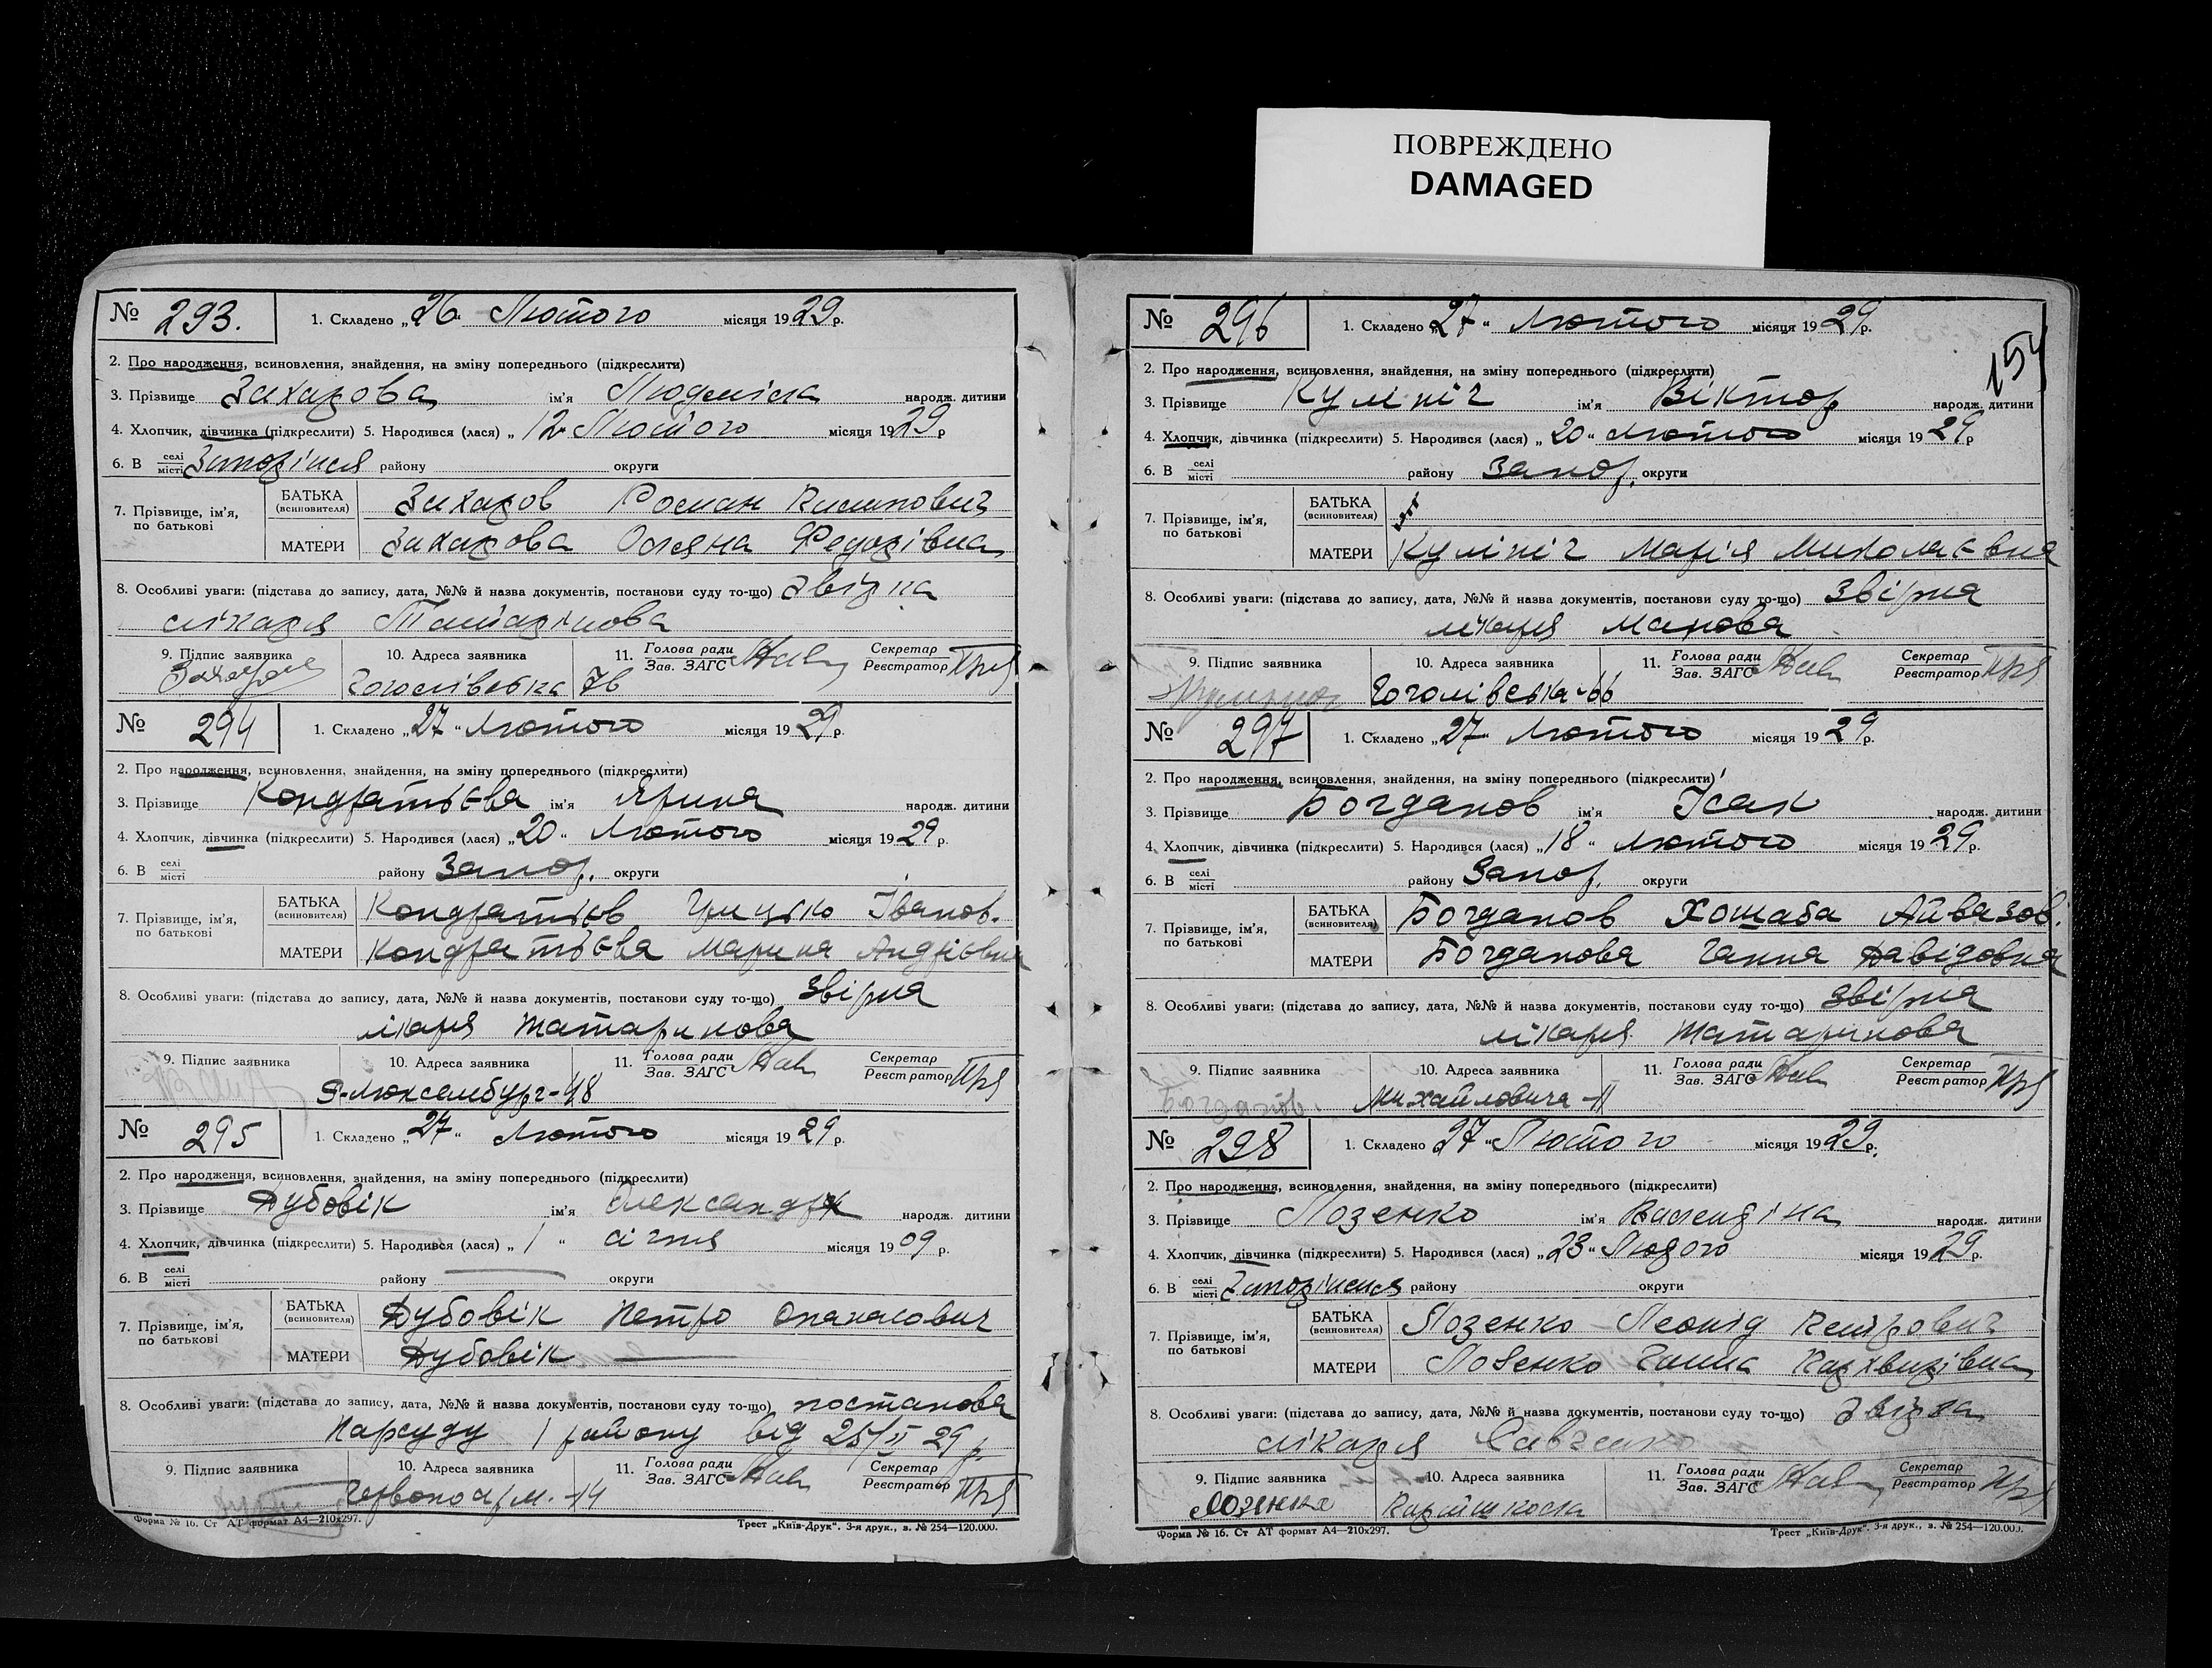 ПОВРЕЖДЕНО
DAMAGED
№ 293.
1. Складено „26“ Лютого місяця 1929 р.
2. Про народження, всиновлення, знайдення, на зміну попереднього (підкреслити)
3. Прізвище Захарова ім'я Людміла народж. дитини
4. Хлопчик, дівчинка (підкреслити) 5. Народився (лася) „12 Лютого місяця 1929 р
6. В селі місті Запоріжжя району округи
7. Прізвище, ім'я, по батькові
БАТЬКА (всиновителя) Захаров Роман
МАТЕРИ Захарова Федорівна
8. Особливі уваги: (підстава до запису, дата, №№ й назва документів, постанови суду то-що) Звірка
лікаря Татарінова
9. Підпис заявника 10. Адреса заявника 11. Голова ради Зав. ЗАГС Секретар Реєстратор
Гоголівська
№ 294
1. Складено „27“ Лютого місяця 1929 р.
2. Про народження, всиновлення, знайдення, на зміну попереднього (підкреслити)
3. Прізвище Кондратьєва ім'я Ярина народж. дитини
4. Хлопчик, дівчинка (підкреслити) 5. Народився (лася) „20“ Лютого місяця 1929 р.
6. В селі місті району Запор. округи
7. Прізвище, ім'я, по батькові
БАТЬКА (всиновителя) Кондратьєв Грицько Іванов.
МАТЕРИ Кондратьєва Марина Андрієвна
8. Особливі уваги: (підстава до запису, дата, №№ й назва документів, постанови суду то-що) Звірка
лікаря Татаринова
9. Підпис заявника 10. Адреса заявника 11. Голова ради Зав. ЗАГС Секретар Реєстратор
Люксембург-48
№ 295
1. Складено „27“ Лютого місяця 1929 р.
2. Про народження, всиновлення, знайдення, на зміну попереднього (підкреслити)
3. Прізвище Дубовік ім'я народж. дитини
4. Хлопчик, дівчинка (підкреслити) 5. Народився (лася) „1“ січня місяця 1909 р.
6. В селі місті району округи
7. Прізвище, ім'я, по батькові
БАТЬКА (всиновителя) Дубовік Петро Опанасович
МАТЕРИ Дубовік
8. Особливі уваги: (підстава до запису, дата, №№ й назва документів, постанови суду то-що) постанова
Нарсуду 1 району від 25/II 29 р.
9. Підпис заявника 10. Адреса заявника 11. Голова ради Зав. ЗАГС Секретар Реєстратор
Червоноарм.-14
Форма № 16. Ст АТ формат А4—210х297. Трест „Київ-Друк“. 3-я друк., в. № 254—120.000.
154
№ 296
1. Складено „27“ Лютого місяця 1929 р.
2. Про народження, всиновлення, знайдення, на зміну попереднього (підкреслити)
3. Прізвище Кулініч ім'я Віктор народж. дитини
4. Хлопчик, дівчинка (підкреслити) 5. Народився (лася) „20“ Лютого місяця 1929 р
6. В селі місті району Запор. округи
7. Прізвище, ім'я, по батькові
БАТЬКА (всиновителя)
МАТЕРИ Кулініч Марія Миколаєвна
8. Особливі уваги: (підстава до запису, дата, №№ й назва документів, постанови суду то-що) Звірка
лікаря
9. Підпис заявника 10. Адреса заявника 11. Голова ради Зав. ЗАГС Секретар Реєстратор
Гоголівська-66
№ 297
1. Складено „27“ Лютого місяця 1929 р.
2. Про народження, всиновлення, знайдення, на зміну попереднього (підкреслити)
3. Прізвище Богданов ім'я Ісак народж. дитини
4. Хлопчик, дівчинка (підкреслити) 5. Народився (лася) „18“ Лютого місяця 1929 р.
6. В селі місті району Запор. округи
7. Прізвище, ім'я, по батькові
БАТЬКА (всиновителя) Богданов Хошаба Айвазов.
МАТЕРИ Богданова Ганна Давідовна
8. Особливі уваги: (підстава до запису, дата, №№ й назва документів, постанови суду то-що) Звірка
лікаря Татаринова
9. Підпис заявника 10. Адреса заявника 11. Голова ради Зав. ЗАГС Секретар Реєстратор
Богданов. Михайловича-11
№ 298
1. Складено „27“ Лютого місяця 1929 р.
2. Про народження, всиновлення, знайдення, на зміну попереднього (підкреслити)
3. Прізвище Лозенко ім'я народж. дитини
4. Хлопчик, дівчинка (підкреслити) 5. Народився (лася) „23“ Лютого місяця 1929 р.
6. В селі місті Запоріжжя району округи
7. Прізвище, ім'я, по батькові
БАТЬКА (всиновителя) Лозенко Леонід Петрович
МАТЕРИ Лозенко Ганна
8. Особливі уваги: (підстава до запису, дата, №№ й назва документів, постанови суду то-що) Звірка
лікаря Савченко
9. Підпис заявника 10. Адреса заявника 11. Голова ради Зав. ЗАГС Секретар Реєстратор
Форма № 16. Ст АТ формат А4—210х297. Трест „Київ-Друк“. 3-я друк., в. № 254—120.000.